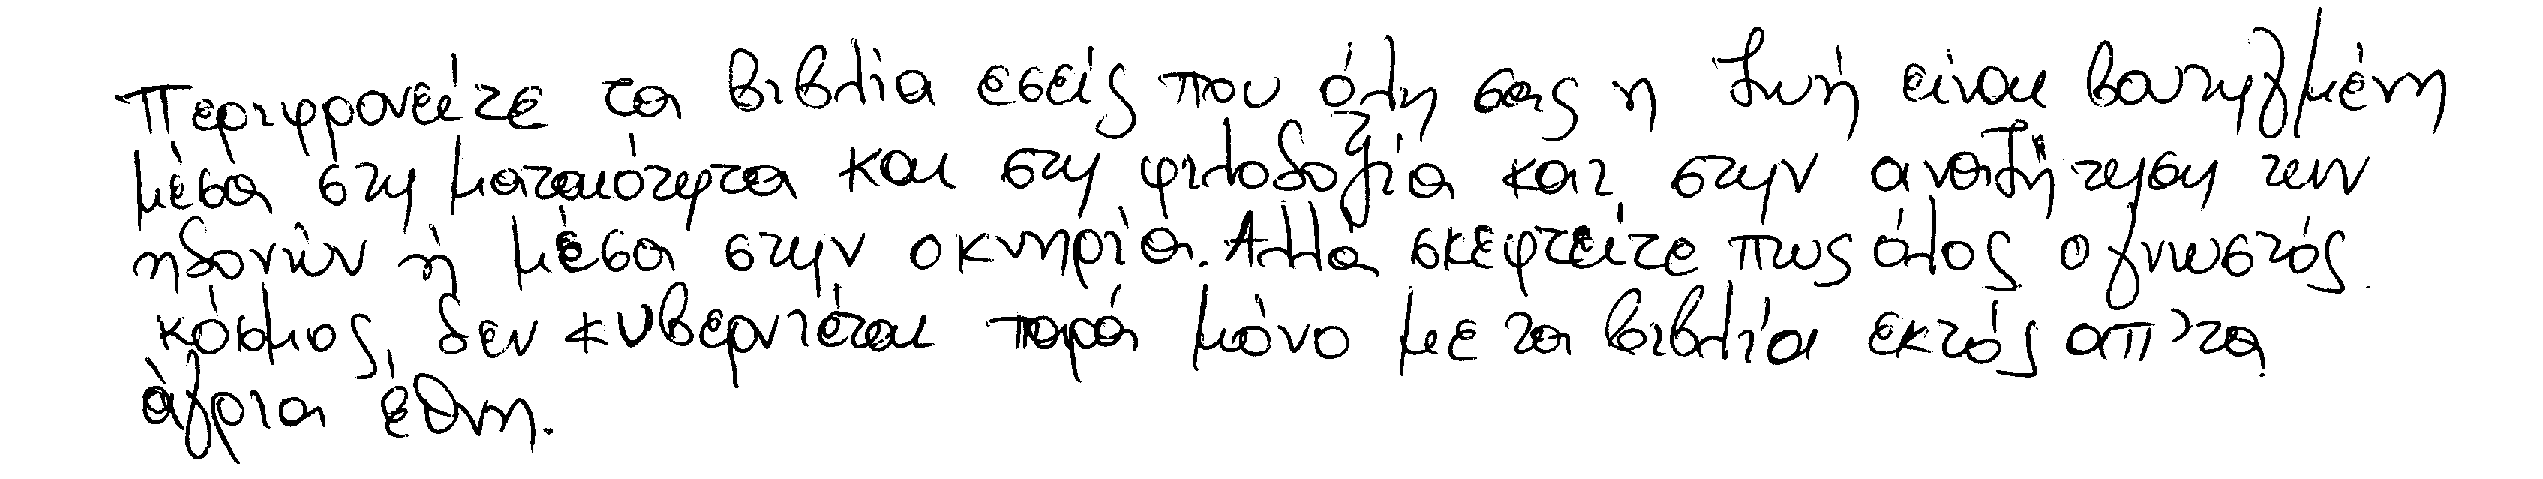 Περιφρονείτε τα βιβλία εσείς που όλη σας η ζωή είναι βουτηγμένη
μέσα στη ματαιότητα και στη φιλοδοξία και στην αναζήτηση των
ηδονών ή μέσα στην οκνηρία. Αλλά σκεφτείτε πως όλος ο γνωστός
κόσμος, δεν κυβερνιέται παρά μόνο με τα βιβλία εκτός απ' τα
άγρια έθνη.